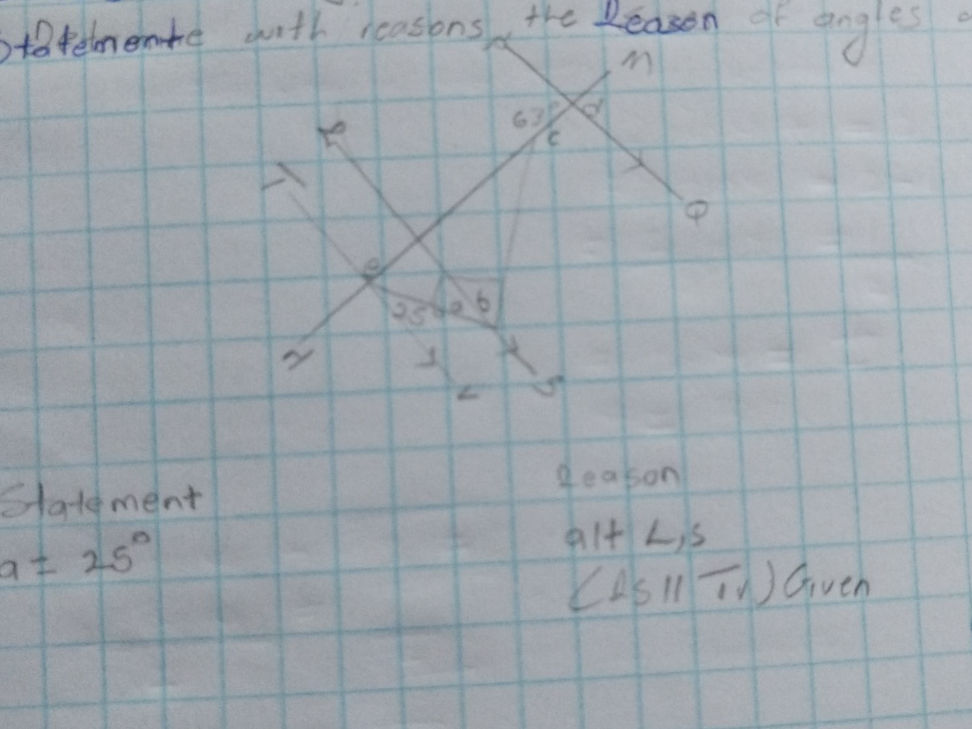 with reasons the Reason of angles
M
63°
d
c
Q
R
T
e
25°
a
b
N
L
S
Statement
Reason
a = 25°
alt L,s
(RS || TV) Given